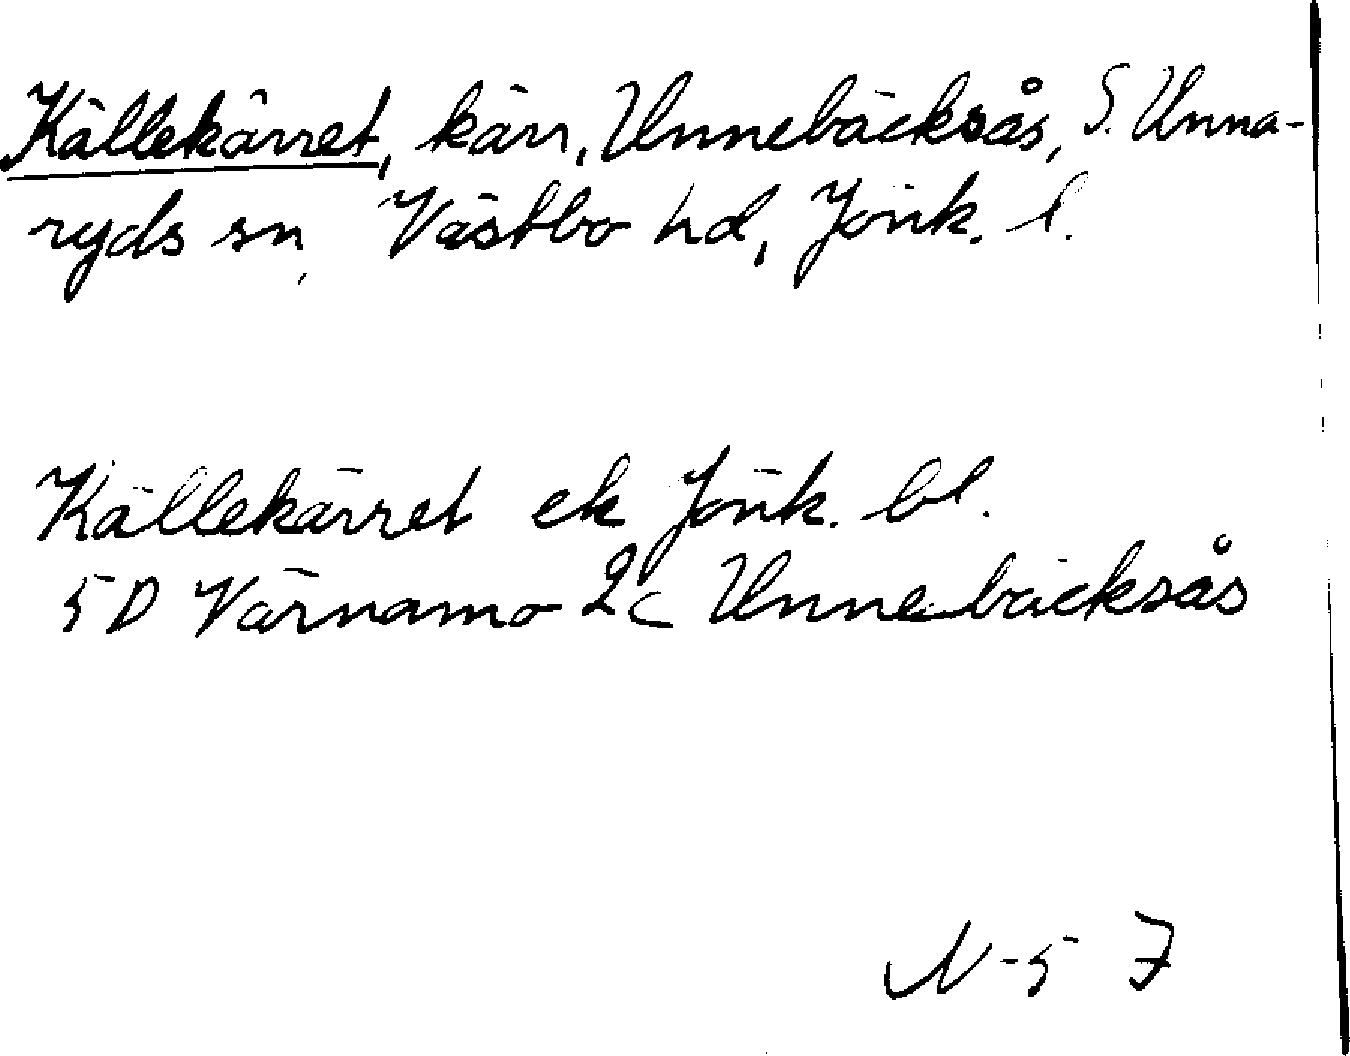 Källekärret, kärr, Unnebäcksås, S. Unna-
ryds sn, Västbo hd, Jönk. l.
Källekärret ek Jönk. bl.
5D Värnamo 2c Unnebäcksås
N-57